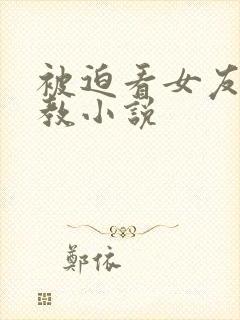 被迫看女友
教小説
鄭依